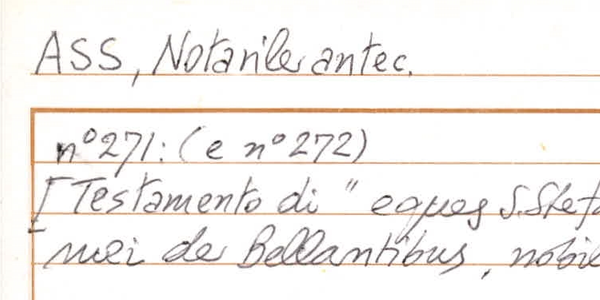 ASS, Notarile antec.
n° 271: (e n° 272)
[Testamento di " eques S. Stef
mei de Bellantibus, nobile